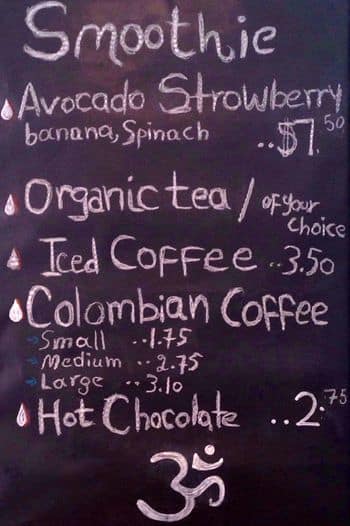 Smoothie
Avocado Strowberry
banana, Spinach ..$7.50
Organic tea / of your
choice
Iced Coffee ..3.50
Colombian Coffee
Small ..1.75
Medium ..2.75
Large ..3.10
Hot Chocolate ..2.75
ॐ